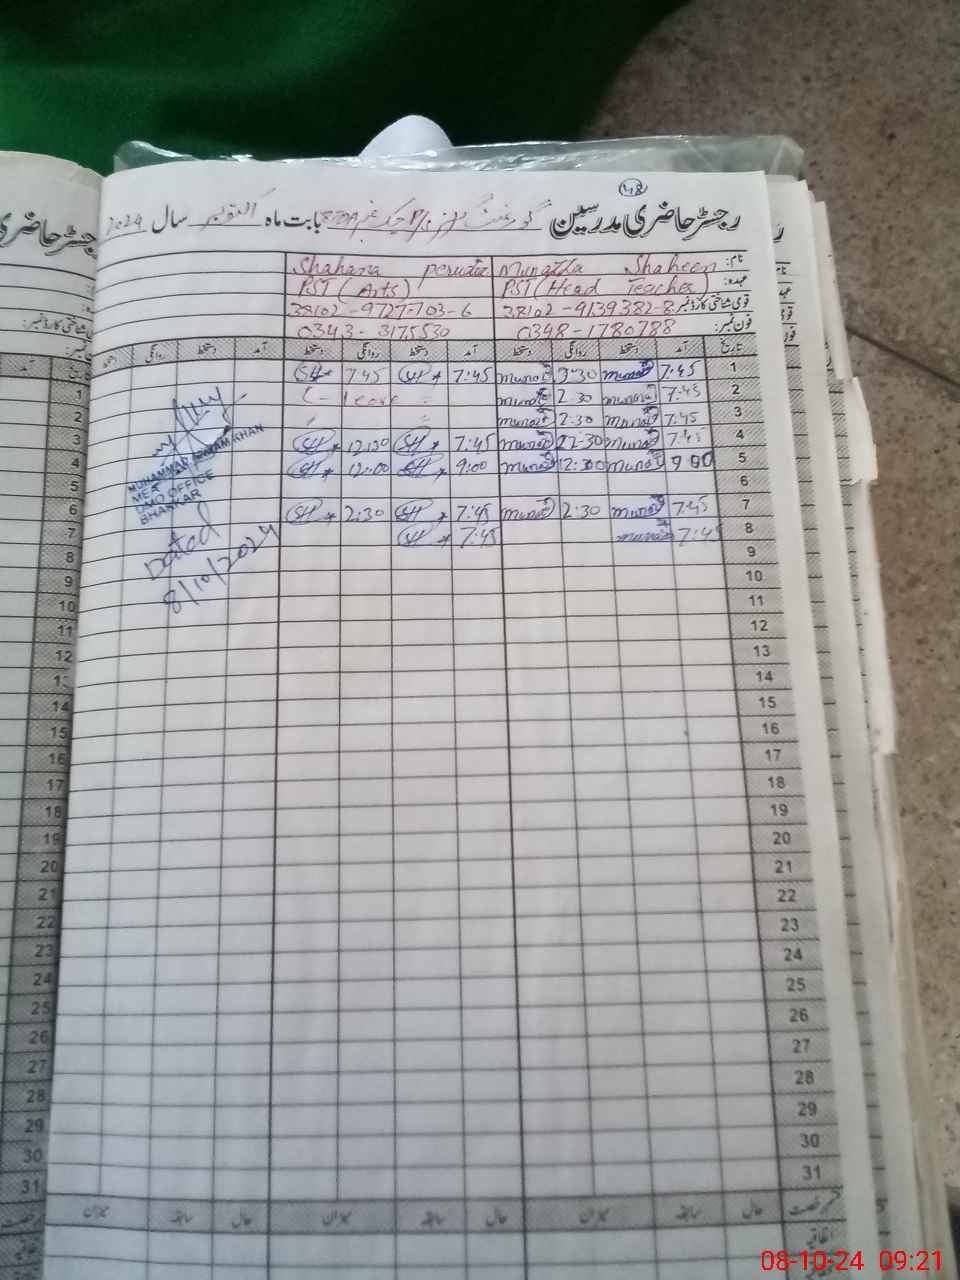 48
رجسٹر حاضری مدرسین گورنمنٹ بابت ماہ اکتوبر سال 2024
نام: Munazza Shaheen Shahana
عہدہ: PST (Head Teacher) PST (Arts)
قومی شناختی کارڈ نمبر 38102-9139382-8 38102-9727703-6
فون نمبر: 0348-1780788 0343-3175530
تاریخ آمد دستخط روانگی دستخط آمد دستخط روانگی دستخط آمد دستخط روانگی دستخط
1 7:45 7:45 SH 7:45 SH
2 7:45 2:30 Leave
3 7:45 2:30
4 7:45 7:45 SH SH
5 9:00 12:00 9:00 SH 12:00 SH
6
7 7:45 2:30 7:45 SH 2:30 SH
8 7:45 7:45 SH
9
10
11
12
13
14
15
16
17
18
19
20
21
22
23
24
25
26
27
28
29
30
31
MUHAMMAD KHAN
MEA
DMO OFFICE
BHAKKAR
Dated
8/10/2024
قسم رخصت حال سابقہ میزان حال سابقہ میزان حال سابقہ میزان
اتفاقیہ
08-10-24 09:21